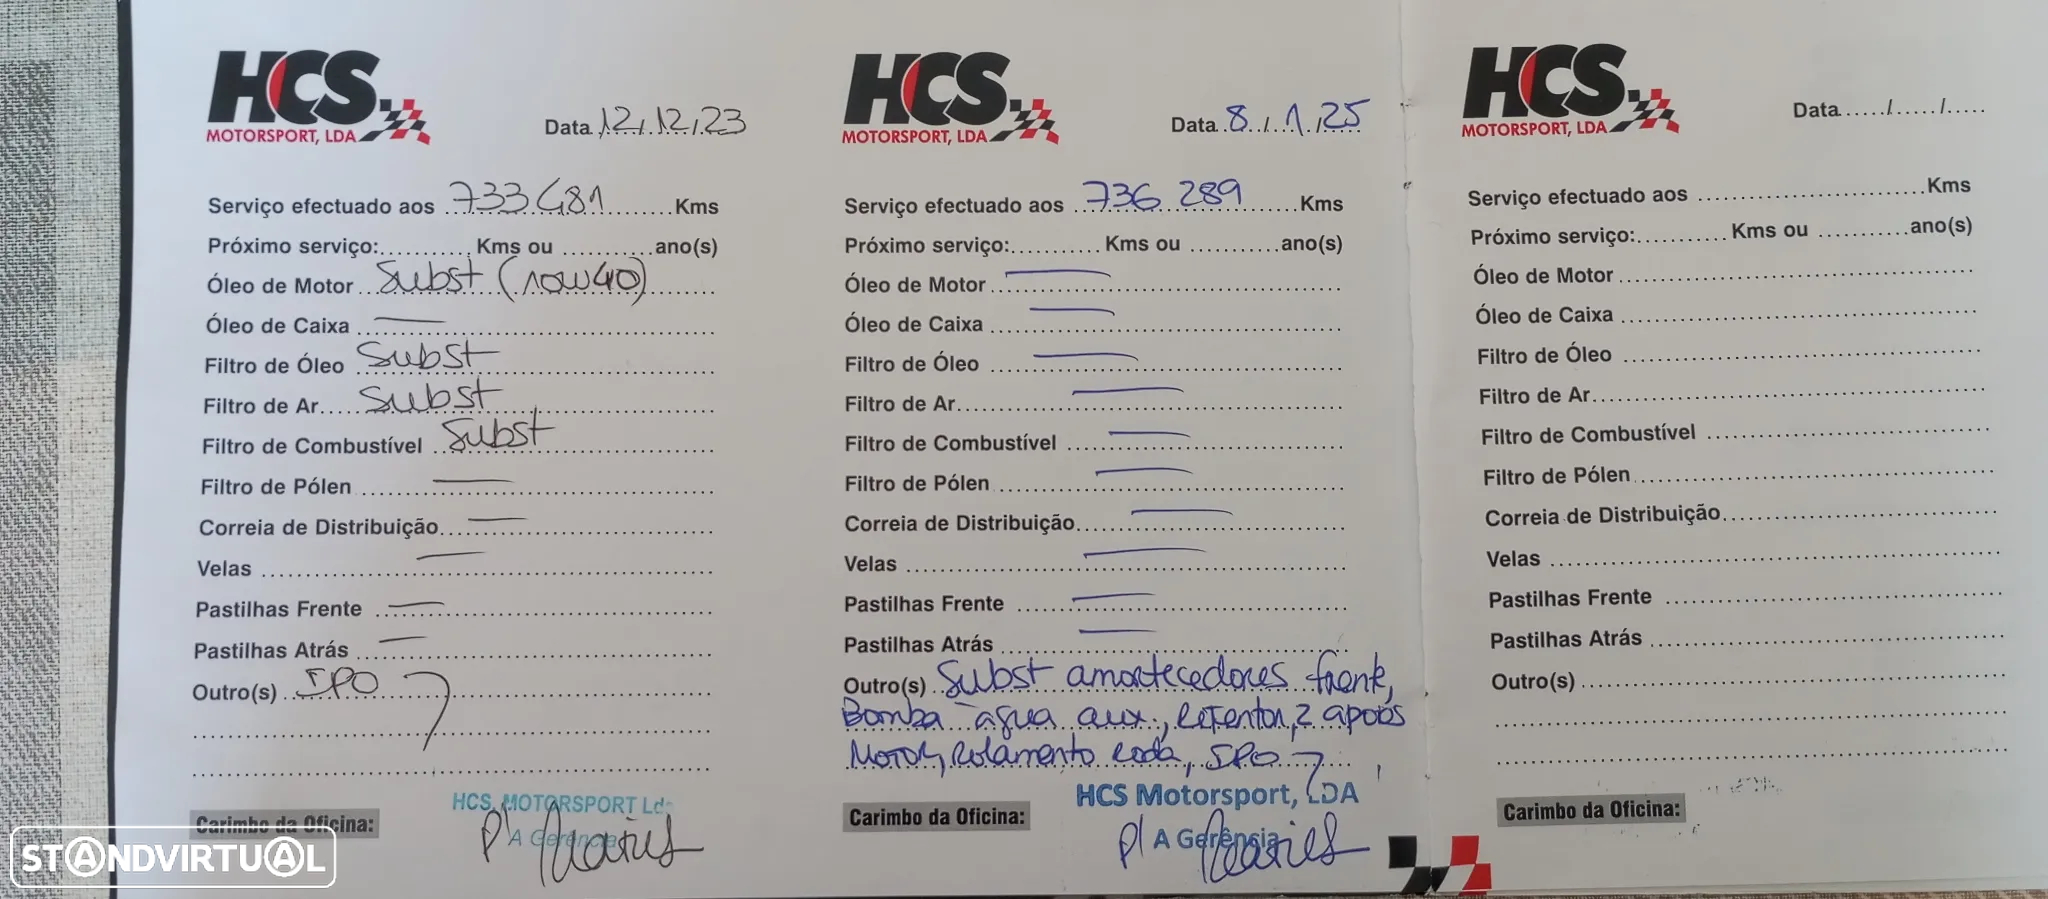 HCS
MOTORSPORT, LDA
Data 12/12/23
Serviço efectuado aos 733481 Kms
Próximo serviço:.......... Kms ou .......... ano(s)
Óleo de Motor Subst (10W40)
Óleo de Caixa —
Filtro de Óleo Subst
Filtro de Ar Subst
Filtro de Combustível Subst
Filtro de Pólen —
Correia de Distribuição —
Velas —
Pastilhas Frente —
Pastilhas Atrás —
Outro(s) IPO
Carimbo da Oficina:
HCS MOTORSPORT Lda
P' A Gerência
HCS
MOTORSPORT, LDA
Data 8/1/25
Serviço efectuado aos 736 289 Kms
Próximo serviço:.......... Kms ou .......... ano(s)
Óleo de Motor —
Óleo de Caixa —
Filtro de Óleo —
Filtro de Ar —
Filtro de Combustível —
Filtro de Pólen —
Correia de Distribuição —
Velas —
Pastilhas Frente —
Pastilhas Atrás —
Outro(s) Subst amortecedores frente,
Bomba água aux., retentor, 2 apoios
Motor, rolamento roda, IPO
Carimbo da Oficina:
HCS Motorsport, LDA
P' A Gerência
HCS
MOTORSPORT, LDA
Data ...../...../.....
Serviço efectuado aos .......... Kms
Próximo serviço:.......... Kms ou .......... ano(s)
Óleo de Motor
Óleo de Caixa
Filtro de Óleo
Filtro de Ar
Filtro de Combustível
Filtro de Pólen
Correia de Distribuição
Velas
Pastilhas Frente
Pastilhas Atrás
Outro(s)
Carimbo da Oficina:
STANDVIRTUAL